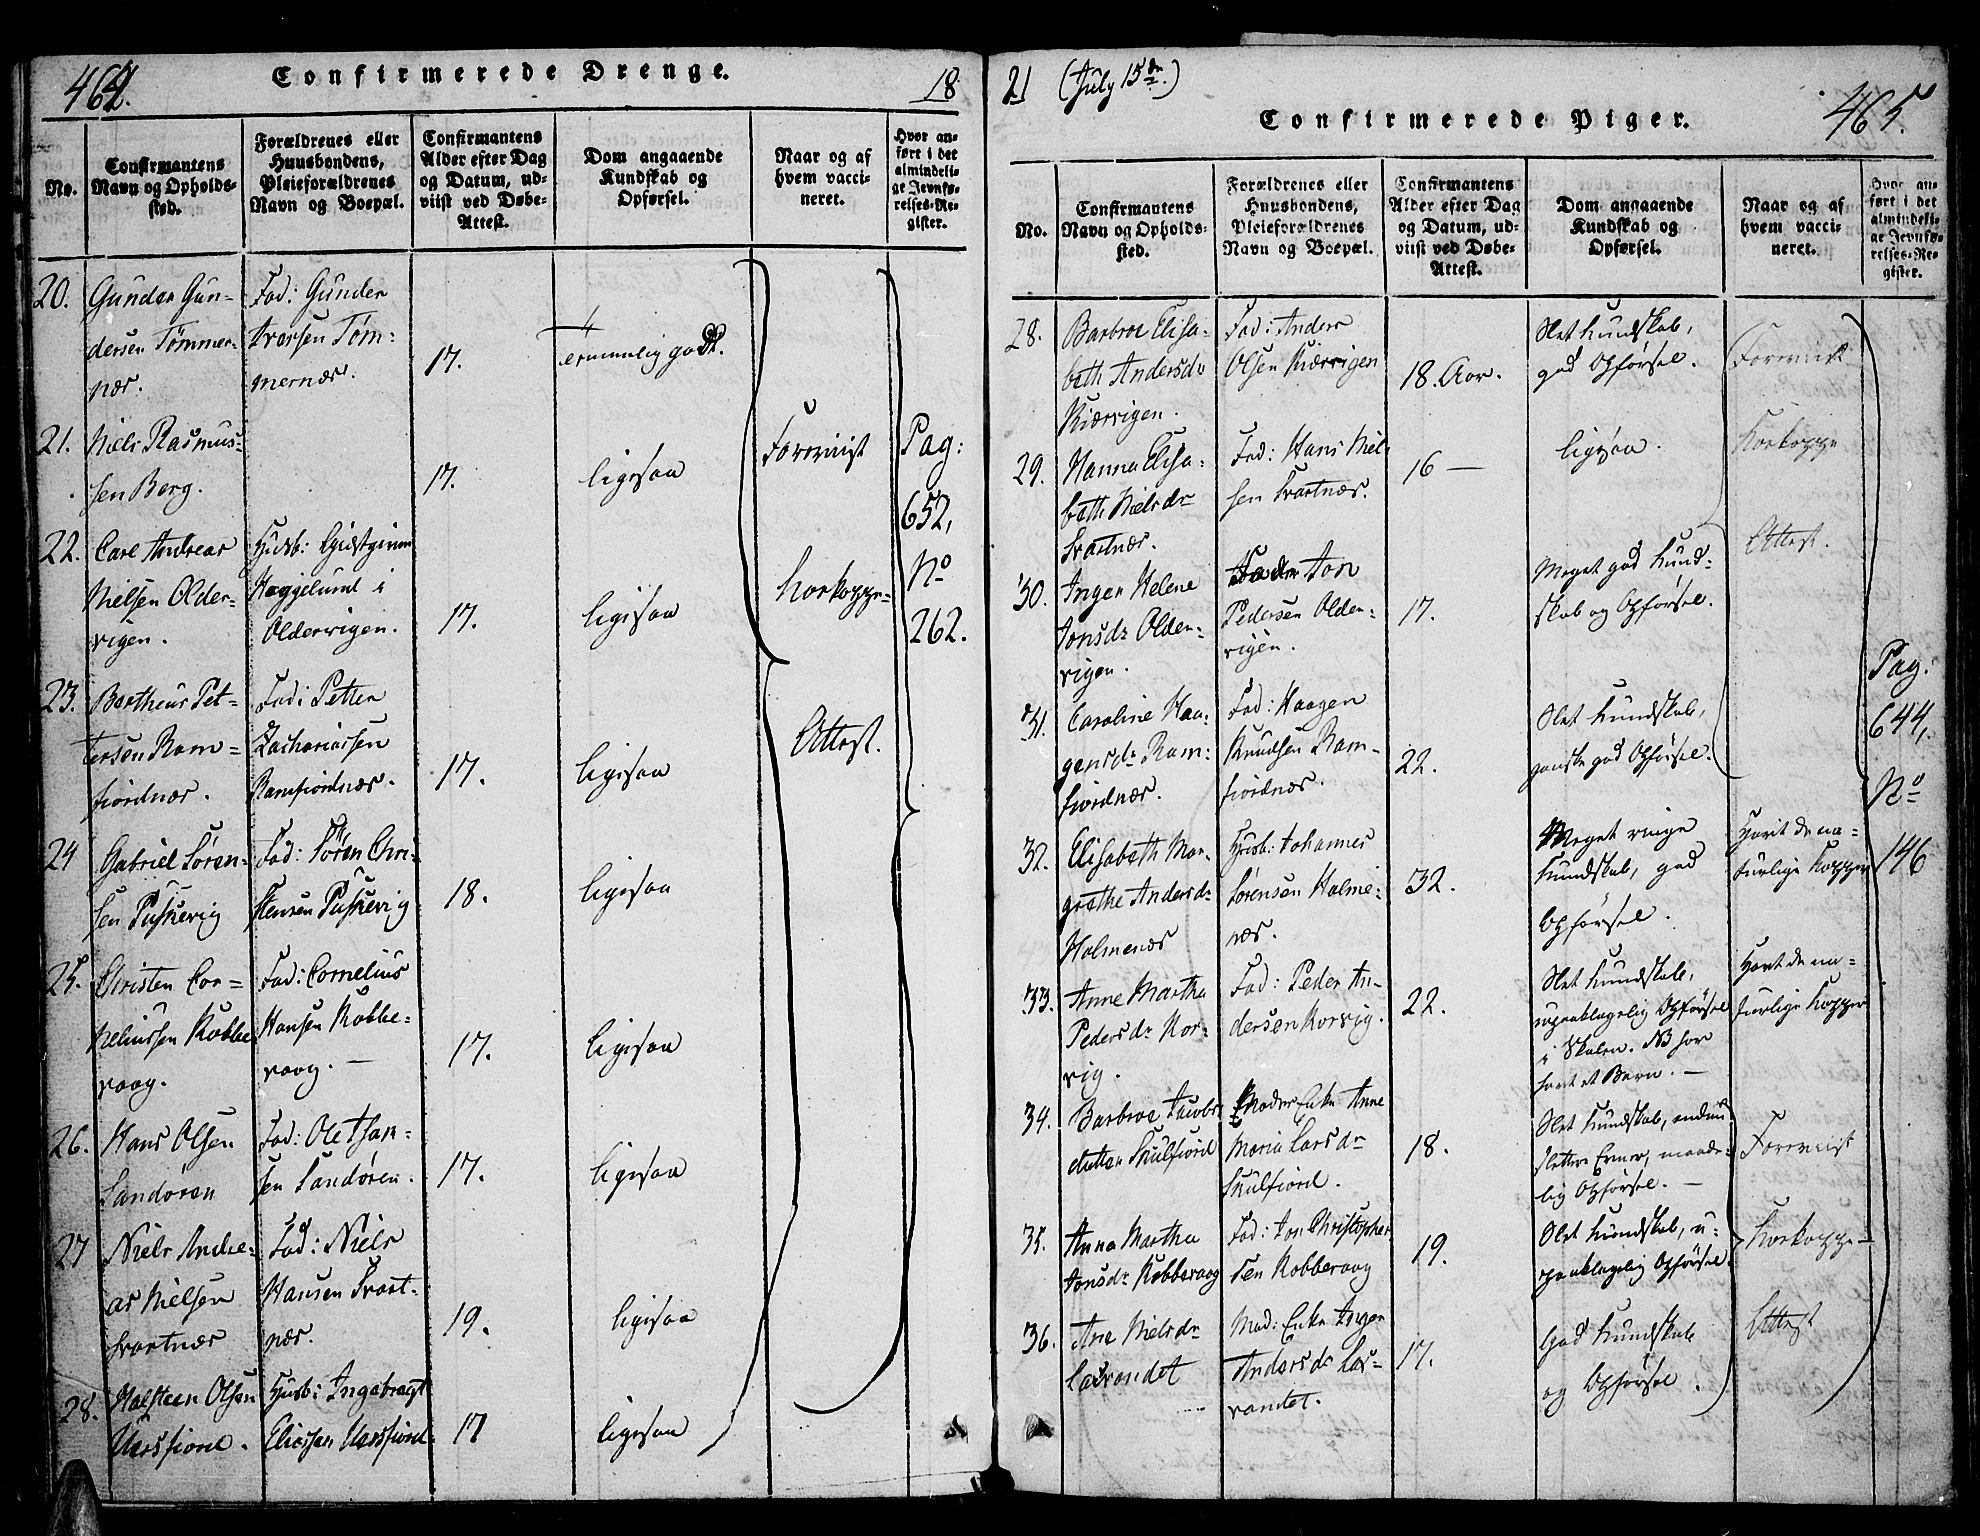 464.
Confirmerede Drenge.
18
No.
Confirmantens
Navn og Opholds-
sted.
Forældrenes eller
Huusbondens,
Pleieforældrenes
Navn og Boepæl.
Confirmantens
Alder efter Dag
og Datum, ud-
viist ved Døbe-
Attest.
Dom angaaende
Kundskab og
Opførsel.
Naar og af
hvem vacci-
neret.
Hvor an-
ført i det
almindeli-
ge Jevnfø-
relses-Re-
gister.
20.
Gunder Gun-
dersen Tømmer-
næs.
Fad: Gunder
Iversen Tøm-
mernæs.
17.
Niels Rasmus-
sen Berg.
21.
17.
ligesaa
22.
Carl Andreas
Nielsen Older-
vigen.
Husb: Giestgiver
Heggelund i
Oldervigen.
17.
ligesaa
23.
Bertheus Pet-
tersen Ram-
fiordnæs.
Fad: Petter
Zachariassen
Ramfiordnæs.
17.
ligesaa
24
Gabriel Søren-
sen
Fad: Søren Chri-
stensen
18.
ligesaa
25.
Christen Cor-
neliussen Kobbe
vaag.
Fad: Cornelius
Hansen Kobbe-
vaag. —
17.
ligesaa
26.
Hans Olsen
Sandøren
Fad: Ole Han-
sen Sandøren.
17.
ligesaa
27
Niels Andre-
as Nielsen
Svartnæs
Fad: Niels
Hansen Svart-
næs.
19.
ligesaa
28.
Halsteen Olsen
Ursfiord.
Husb: Ingebregt
Eliassen Ursfiord.
17
ligesaa
Foreviist
Kokoppe-
Attest.
Pag:
652,
No
262.
21 (July 15de.)
Confirmerede Piger.
465.
No.
Confirmantens
Navn og Opholds-
sted.
Forældrenes eller
Huusbondens,
Pleieforældrenes
Navn og Boepæl.
Confirmantens
Alder efter Dag
og Datum, ud-
viist ved Døbe-
Attest.
Dom angaaende
Kundskab og
Opførsel.
Naar og af
hvem vacci-
neret.
Hvor an-
ført i det
almindeli-
ge Jevnfø-
relses-Re-
gister.
28.
Barbroe Elisa-
beth Andersdr
Kiærvigen.
Fad: Anders
Olsen Kiærvigen
18. Aar.
Slet Kundskab,
god Opførsel.
29.
Hanna Elisa-
beth Nielsdr
Svartnæs.
Fad: Hans Niel-
sen Svartnæs.
16 —
ligesaa.
30.
Inger Helene
Jonsdr Older-
vigen.
Fader Jon
Pedersen Older-
vigen.
17.
Meget god Kund-
skab og Opførsel.
31.
Caroline Haa-
gensdr Ram-
fiordnæs.
Fad: Haagen
Knudsen Ram-
fiordnæs.
22.
Slet Kundskab,
ganske god Opførsel.
Foreviist
Kokoppe
Attest.
32.
Elisabeth Mar-
grethe Andersdr
Holmenæs
Husb: Johannes
Sørensen Holme-
næs.
32.
Meget ringe
Kundskab, god
Opførsel.
Havt de na-
turlige Kopper
33.
Anne Martha
Pedersdr Kor-
vig.
Fad: Peder An-
dersen Korvig.
22.
Slet Kundskab,
upaaklagelig Opførsel
i Skolen. NB har
havt et Barn. —
Havt de na-
turlige Kopper
34.
Barbroe Jacobs-
datter Skulfiord
Moder Enke Anne
Maria Larsdr
Skulfiord.
18.
Slet Kundskab, endnu
slettere Evner, maade-
lig Opførsel. —
35.
Anna Martha
Jonsdr Kobbevaag
Fad: Jon Christopher
sen Kobbevaag
19.
Slet Kundskab, u-
paaklagelig Opførsel.
36.
Ane Nielsdr
Mad: Enke
Andersdr
17.
God Kundskab
og Opførsel.
Foreviist
Kokoppe-
Attest
Pag:
644,
No
146